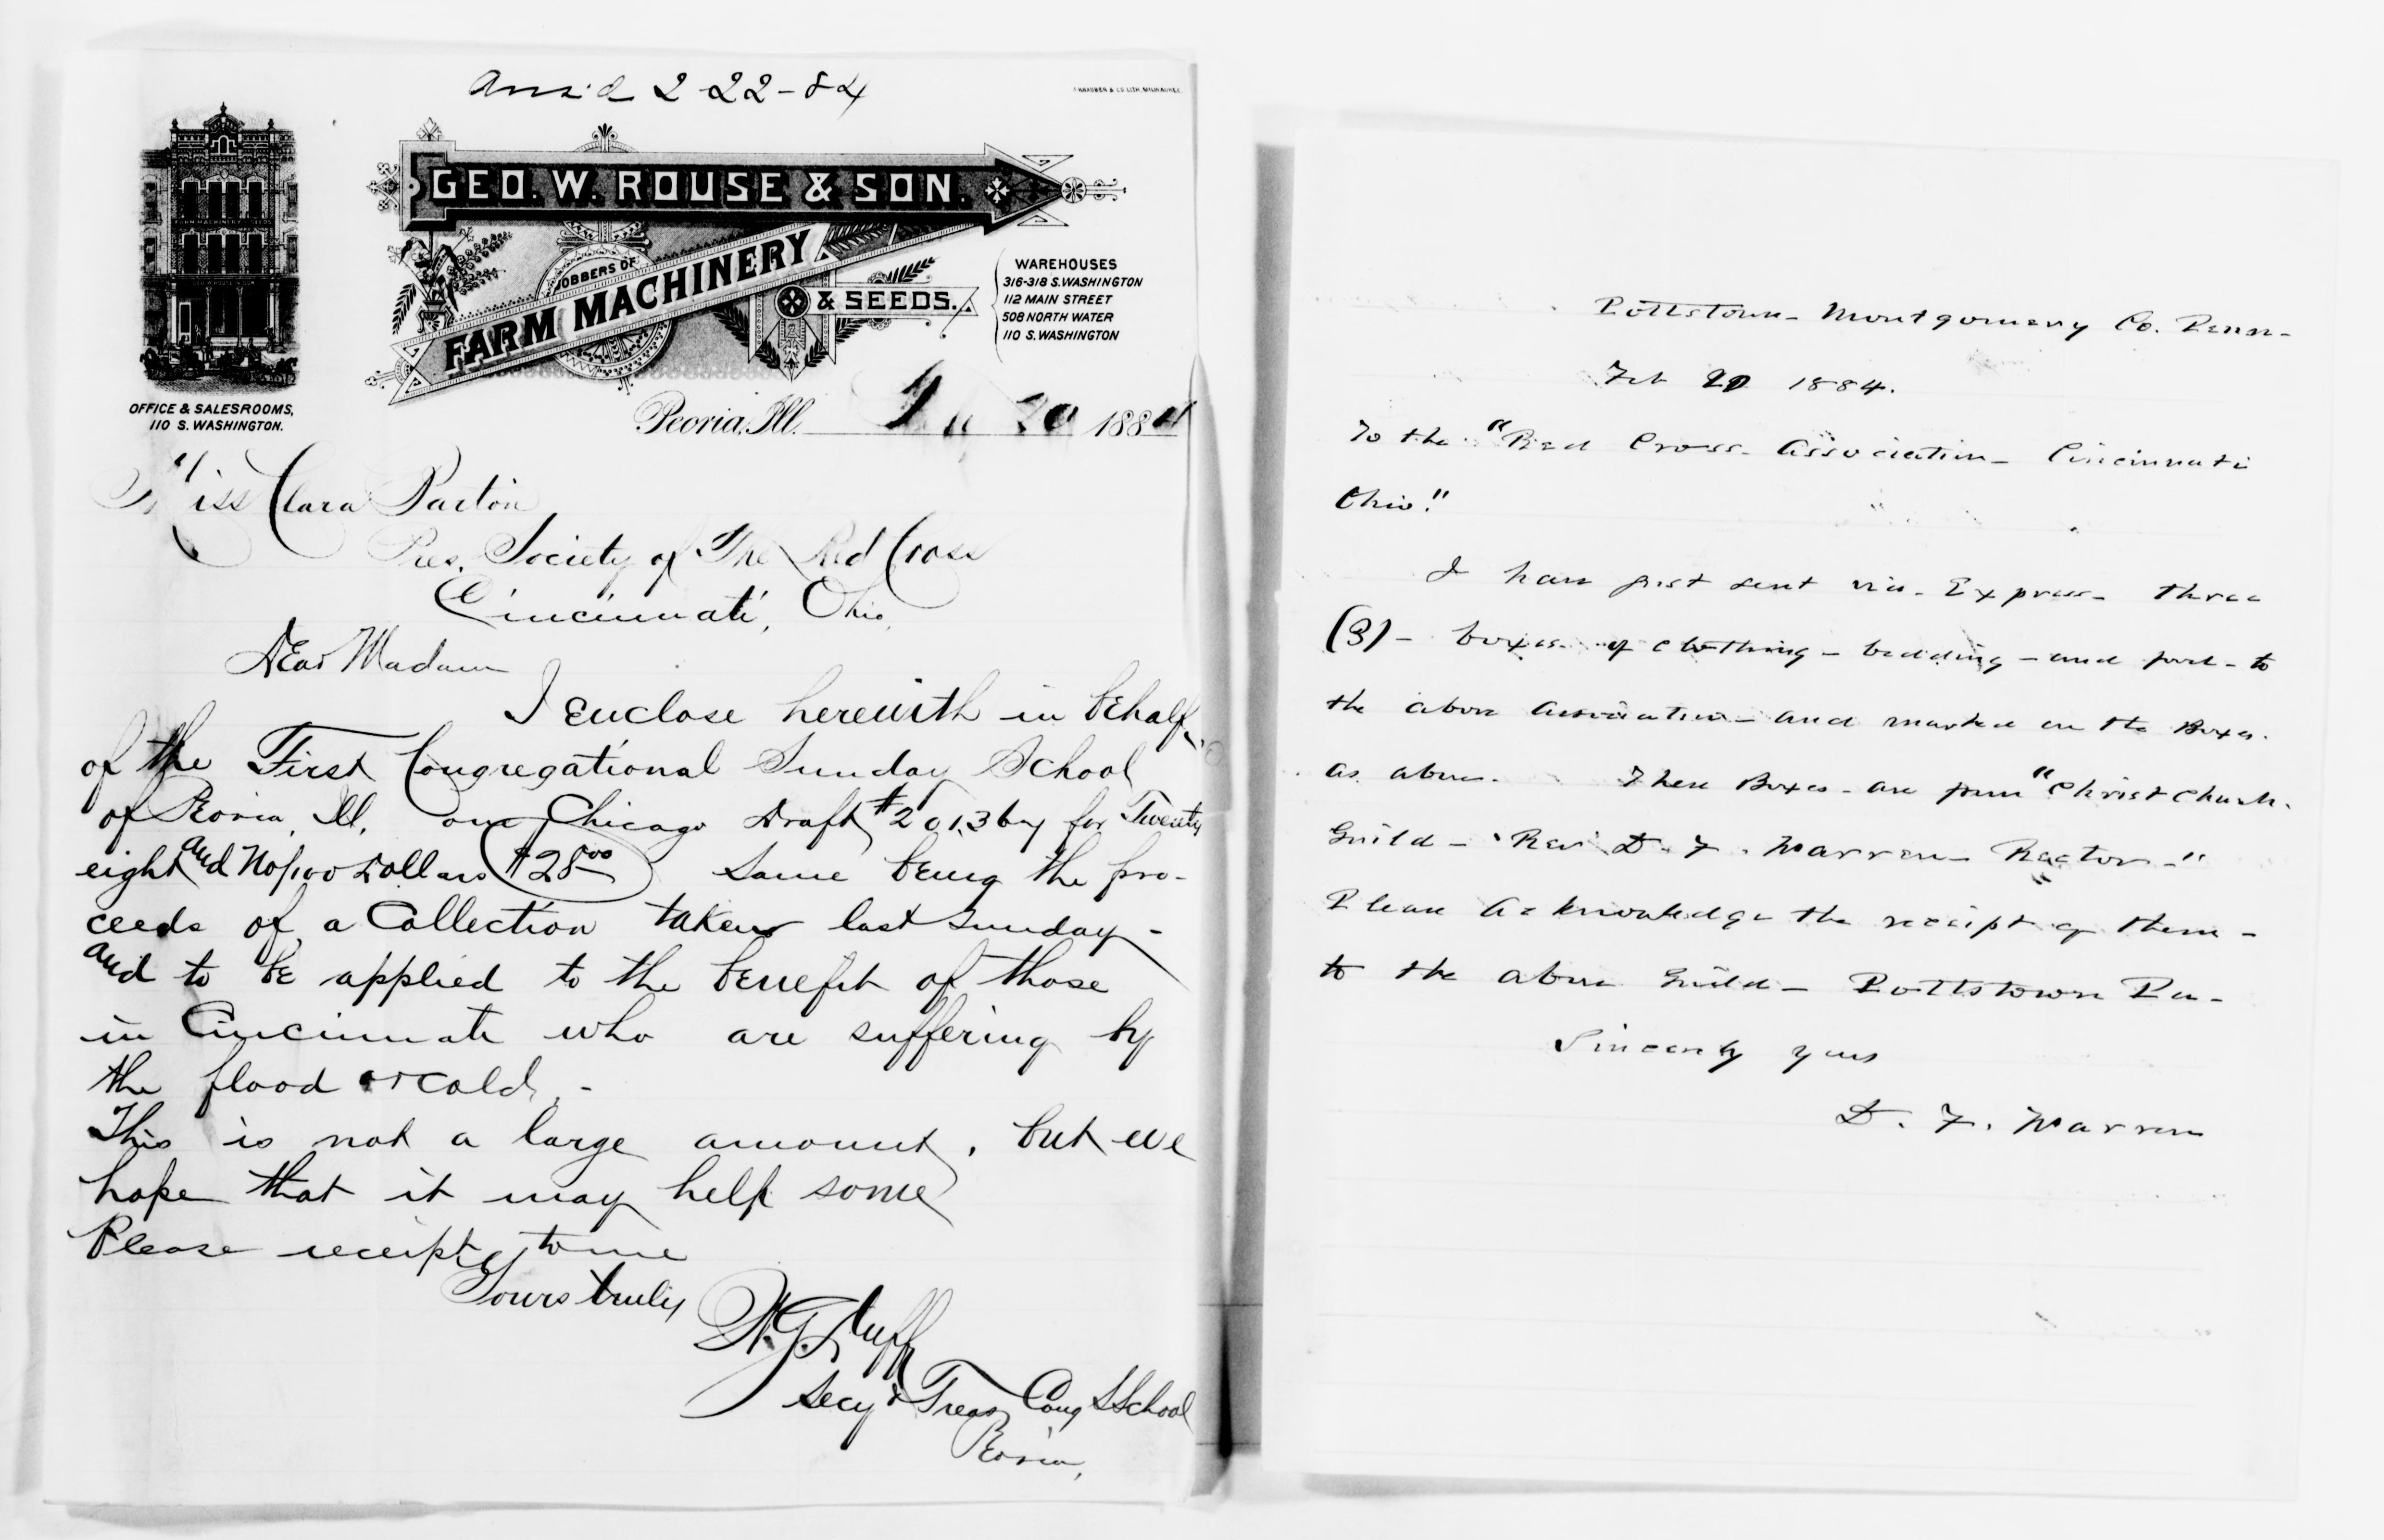 Ans'd 2-22-84
GEO. W. ROUSE & SON.
JOBBERS OF
FARM MACHINERY
& SEEDS.
WAREHOUSES
316-318 S. WASHINGTON
112 MAIN STREET
508 NORTH WATER
110 S. WASHINGTON
OFFICE & SALESROOMS,
110 S. WASHINGTON.
Peoria, Ill. 20 1884
Miss Clara Barton
Pres. Society of The Red Cross
Cincinnati, Ohio,
Dear Madam
I Enclose herewith in behalf
of the First Congregational Sunday School
of Peoria, Ill. one Chicago Draft for Twenty
eight and No/100 Dollars $28.00 Same being the pro-
ceeds of a Collection taken last Sunday -
and to be applied to the benefit of those
in Cincinnati who are suffering by
the flood or cold. -
This is not a large amount, but we
hope that it may help some
Please receipt to me
Yours truly
Secy & Treas Cong S School
Peoria,
Pottstown - Montgomery Co. Penn -
Feb 20 1884.
To the "Red Cross Association - Cincinnati
Ohio."
I have just sent via - Express - three
(3) - boxes of clothing - bedding - and food - to
the above association - and marked on the Boxes.
as above. These Boxes - are from "Christ Church.
Guild - Rev D. F. Warren - Rector -"
Please acknowledge the receipt of them -
to the above Guild - Pottstown Pa -
Sincerely yours
D. F. Warren